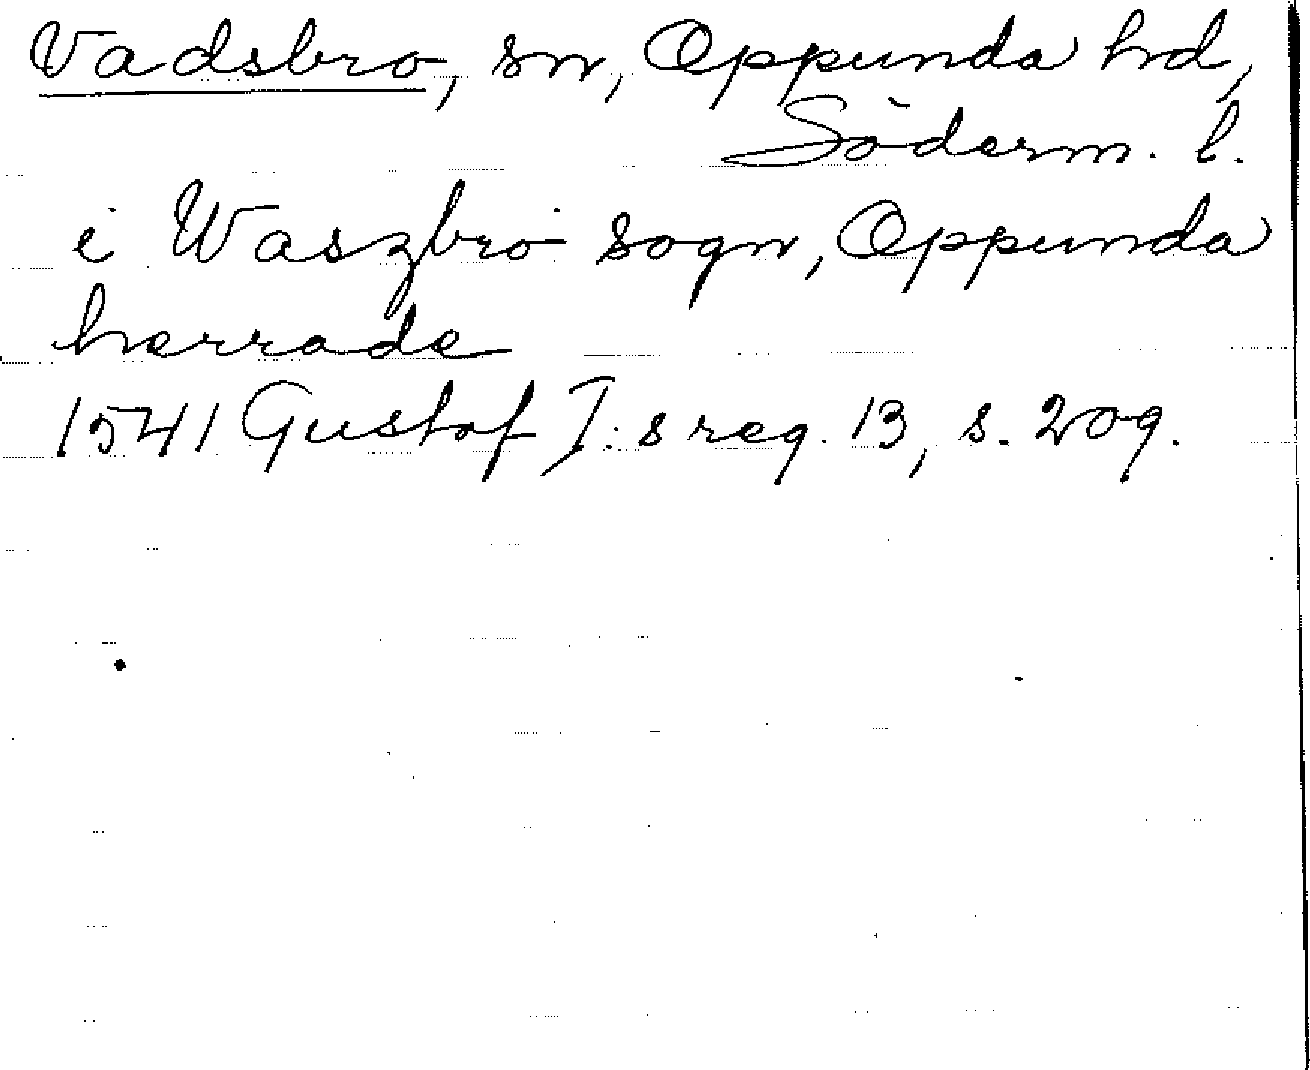 Vadsbro, sn, Oppunda hd,
Söderm. l.
i Waszbro sogn, Oppunda
herrade
1541 Gustaf I:s reg. 13, s. 209.